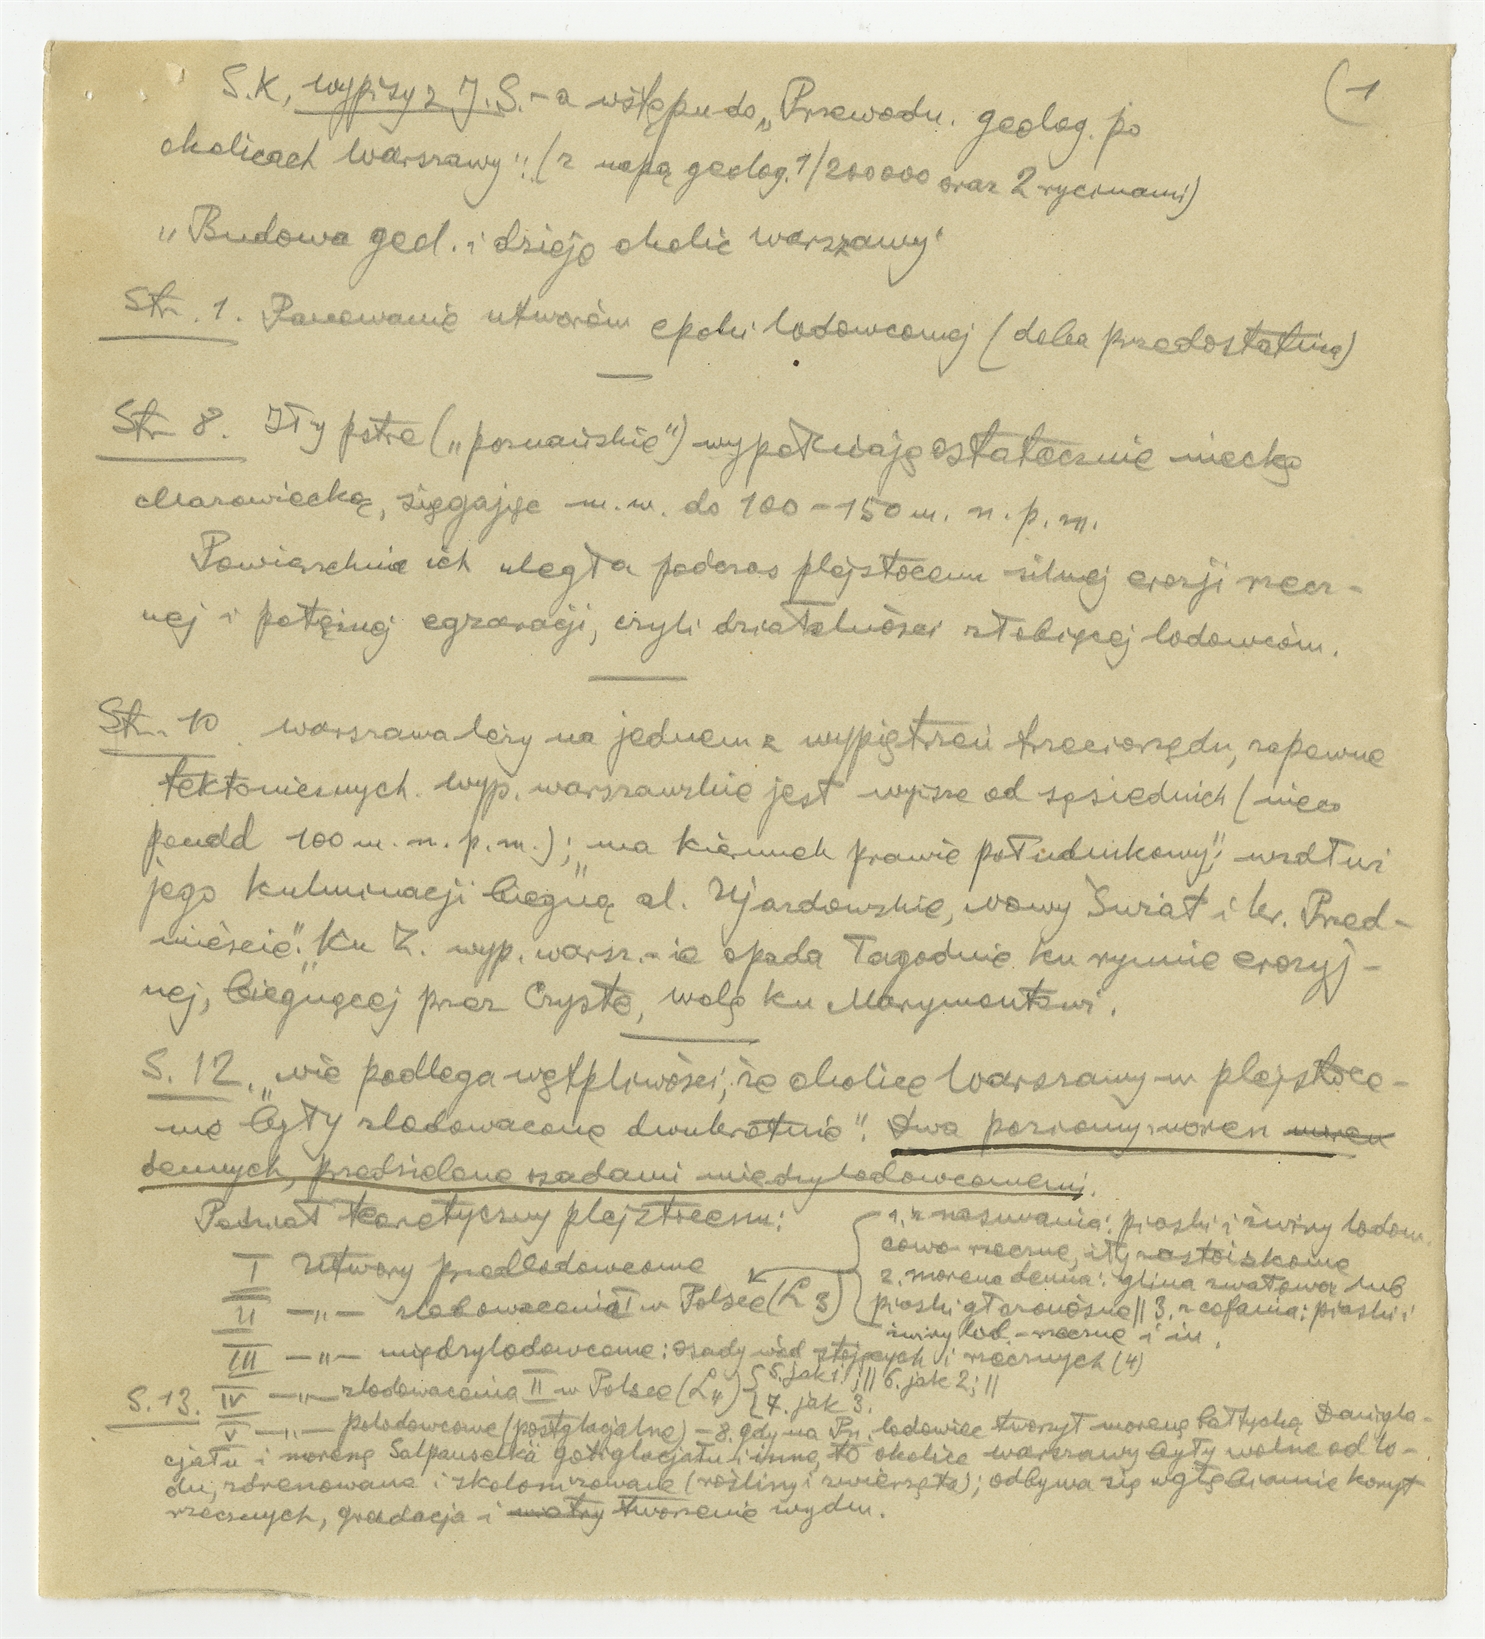 (1
S.K, wypisy z J.S.-a wstępu do „Przewodn. geolog. po
okolicach Warszawy": (z mapą geolog. 1/200000 oraz 2 rycinami)
„Budowa geol. i dzieje okolic Warszawy"
Str. 1. Panowanie utworów epoki lodowcowej (doba przedostatnia)
Str 8. Iły pstre („poznańskie") wypełniają ostatecznie nieckę
mazowiecką, sięgając m.w. do 100-150 m. n.p.m.
Powierzchnia ich uległa podczas plejstocenu silnej erozji rzecz-
nej i potężnej egzaracji, czyli działalności żłobiącej lodowców.
Str. 10. Warszawa leży na jednem z wypiętrzeń trzeciorzędu, zapewne
tektonicznych. Wyp. warszawskie jest wyższe od sąsiednich (nieco
ponad 100 m. n.p.m.); ma kierunek prawie południkowy; „wzdłuż
jego kulminacji biegną al. Ujazdowskie, Nowy Świat i Kr. Przed-
mieście". Ku Z. wyp. warsz.-ie opada łagodnie ku rynnie erozyj-
nej, biegnącej przez Czyste, Wolę ku Marymontowi.
S. 12. „Nie podlega wątpliwości, że okolice Warszawy w plejstoce-
nie były zlodowacone dwukrotnie". Dwa poziomy moren moren
dennych, przedzielone osadami międzylodowcowemi.
Podział teoretyczny plejstocenu:
I Utwory przedlodowcowe
II —„— zlodowacenia I w Polsce (L3)
1. z nasuwania: piaski i żwiry lodow-
cowo-rzeczne, iły zastoiskowe
2. morena denna: glina zwałowa lub
piaski głazonośne || 3. z cofania: piaski i
żwiry lod.-rzeczne i in.
III —„— międzylodowcowe: osady wód stojących i rzecznych (4)
S. 13. IV —„— zlodowacenia II w Polsce (L4) { 5. jak 1; || 6. jak 2; ||
7. jak 3.
V —„— polodowcowe (postglacjalne) – 8. gdy na Pn. lodowiec tworzył morenę bałtycką Daniglа-
cjału i morenę Salpausselkä gotiglacjału i inne, to okolice Warszawy były wolne od lo-
du, zdrenowane i skolonizowane (rośliny i zwierzęta); odbywa się wgłębianie koryt
rzecznych, gradacja i wiatry tworzenie wydm.